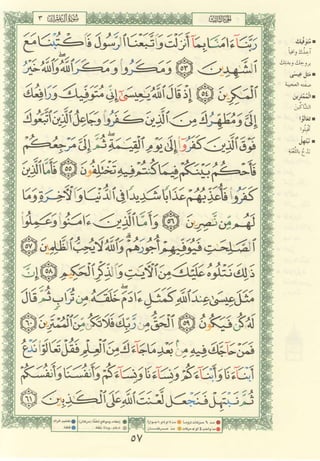 سورة آل عمران ٣
الجزء الثالث
رَبَّنَآ ءَامَنَّا بِمَآ أَنزَلْتَ وَٱتَّبَعْنَا ٱلرَّسُولَ فَٱكْتُبْنَا مَعَ
ٱلشَّٰهِدِينَ ٥٣ وَمَكَرُوا۟ وَمَكَرَ ٱللَّهُ وَٱللَّهُ خَيْرُ
ٱلْمَٰكِرِينَ ٥٤ إِذْ قَالَ ٱللَّهُ يَٰعِيسَىٰٓ إِنِّى مُتَوَفِّيكَ وَرَافِعُكَ
إِلَىَّ وَمُطَهِّرُكَ مِنَ ٱلَّذِينَ كَفَرُوا۟ وَجَاعِلُ ٱلَّذِينَ ٱتَّبَعُوكَ
فَوْقَ ٱلَّذِينَ كَفَرُوٓا۟ إِلَىٰ يَوْمِ ٱلْقِيَٰمَةِ ۖ ثُمَّ إِلَىَّ مَرْجِعُكُمْ
فَأَحْكُمُ بَيْنَكُمْ فِيمَا كُنتُمْ فِيهِ تَخْتَلِفُونَ ٥٥ فَأَمَّا ٱلَّذِينَ
كَفَرُوا۟ فَأُعَذِّبُهُمْ عَذَابًا شَدِيدًا فِى ٱلدُّنْيَا وَٱلْءَاخِرَةِ وَمَا
لَهُم مِّن نَّٰصِرِينَ ٥٦ وَأَمَّا ٱلَّذِينَ ءَامَنُوا۟ وَعَمِلُوا۟
ٱلصَّٰلِحَٰتِ فَيُوَفِّيهِمْ أُجُورَهُمْ ۗ وَٱللَّهُ لَا يُحِبُّ ٱلظَّٰلِمِينَ ٥٧
ذَٰلِكَ نَتْلُوهُ عَلَيْكَ مِنَ ٱلْءَايَٰتِ وَٱلذِّكْرِ ٱلْحَكِيمِ ٥٨ إِنَّ
مَثَلَ عِيسَىٰ عِندَ ٱللَّهِ كَمَثَلِ ءَادَمَ ۖ خَلَقَهُۥ مِن تُرَابٍ ثُمَّ قَالَ
لَهُۥ كُن فَيَكُونُ ٥٩ ٱلْحَقُّ مِن رَّبِّكَ فَلَا تَكُن مِّنَ ٱلْمُمْتَرِينَ ٦٠
فَمَنْ حَآجَّكَ فِيهِ مِنۢ بَعْدِ مَا جَآءَكَ مِنَ ٱلْعِلْمِ فَقُلْ تَعَالَوْا۟ نَدْعُ
أَبْنَآءَنَا وَأَبْنَآءَكُمْ وَنِسَآءَنَا وَنِسَآءَكُمْ وَأَنفُسَنَا وَأَنفُسَكُمْ
ثُمَّ نَبْتَهِلْ فَنَجْعَل لَّعْنَتَ ٱللَّهِ عَلَى ٱلْكَٰذِبِينَ ٦١
٥٧